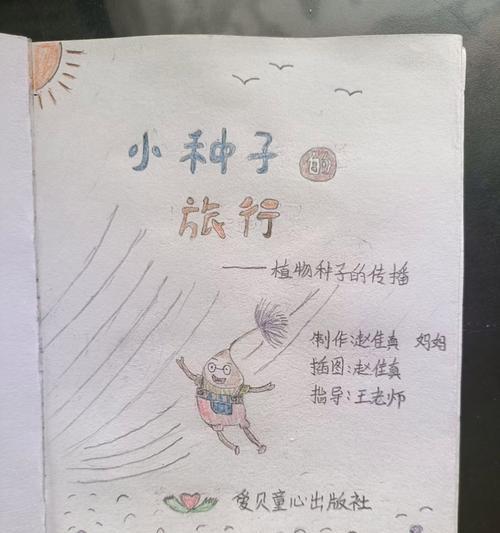 小种子的
旅行
——植物种子的传播
制作:赵佳真 妈妈
插图:赵佳真
指导:王老师
爱贝童心出版社